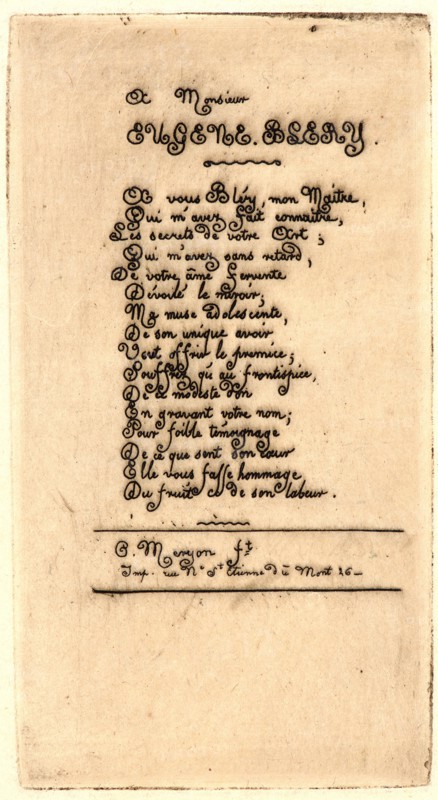 A Monsieur
EUGENE. BLERY.
A vous Bléry, mon Maître,
Qui m'avez fait connaître,
Les secrets de votre Art;
Qui m'avez sans retard,
De votre âme fervente
Dévoilé le miroir;
Ma muse adolescente,
De son unique avoir
Veut offrir le premice;
Souffrez qu'au frontispice,
De ce modeste don
En gravant votre nom;
Pour foible témoignage
De ce que sent son cœur
Elle vous fasse hommage
Du fruit de son labeur.
C. Meryon ft
Imp. rue Ne St Etienne du Mont 26_